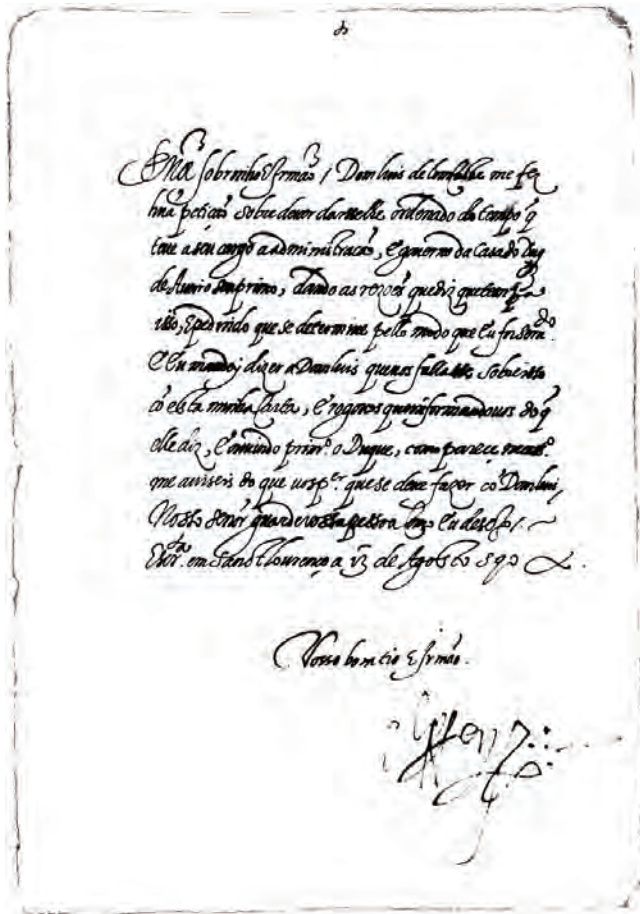 sobrinho E Irmão / Dom luis de me fez
hũa petição sobre dever darselhe ordenado do tempo q̃
teve a seu cargo a administração, E governo da Casa do Duq̃
de Aveiro seu primo, dando as rezões que diz que tem pa
isso, E pedindo que se determine pello modo que Eu for do
E Eu mandej dizer a Dom luis que vos fallasse sobre isto
cõ esta minha Carta, E rogovos que informandovos do q̃
elle diz, E ouvindo primro. o Duque, como parece
me aviseis do que vos p.er que se deve fazer cõ Dom luis,
Nosso senõr guarde vossa pessoa como Eu desejo /.
em Sanct Lourenço a de Agosto 590
Vosso bom tio E Irmão.